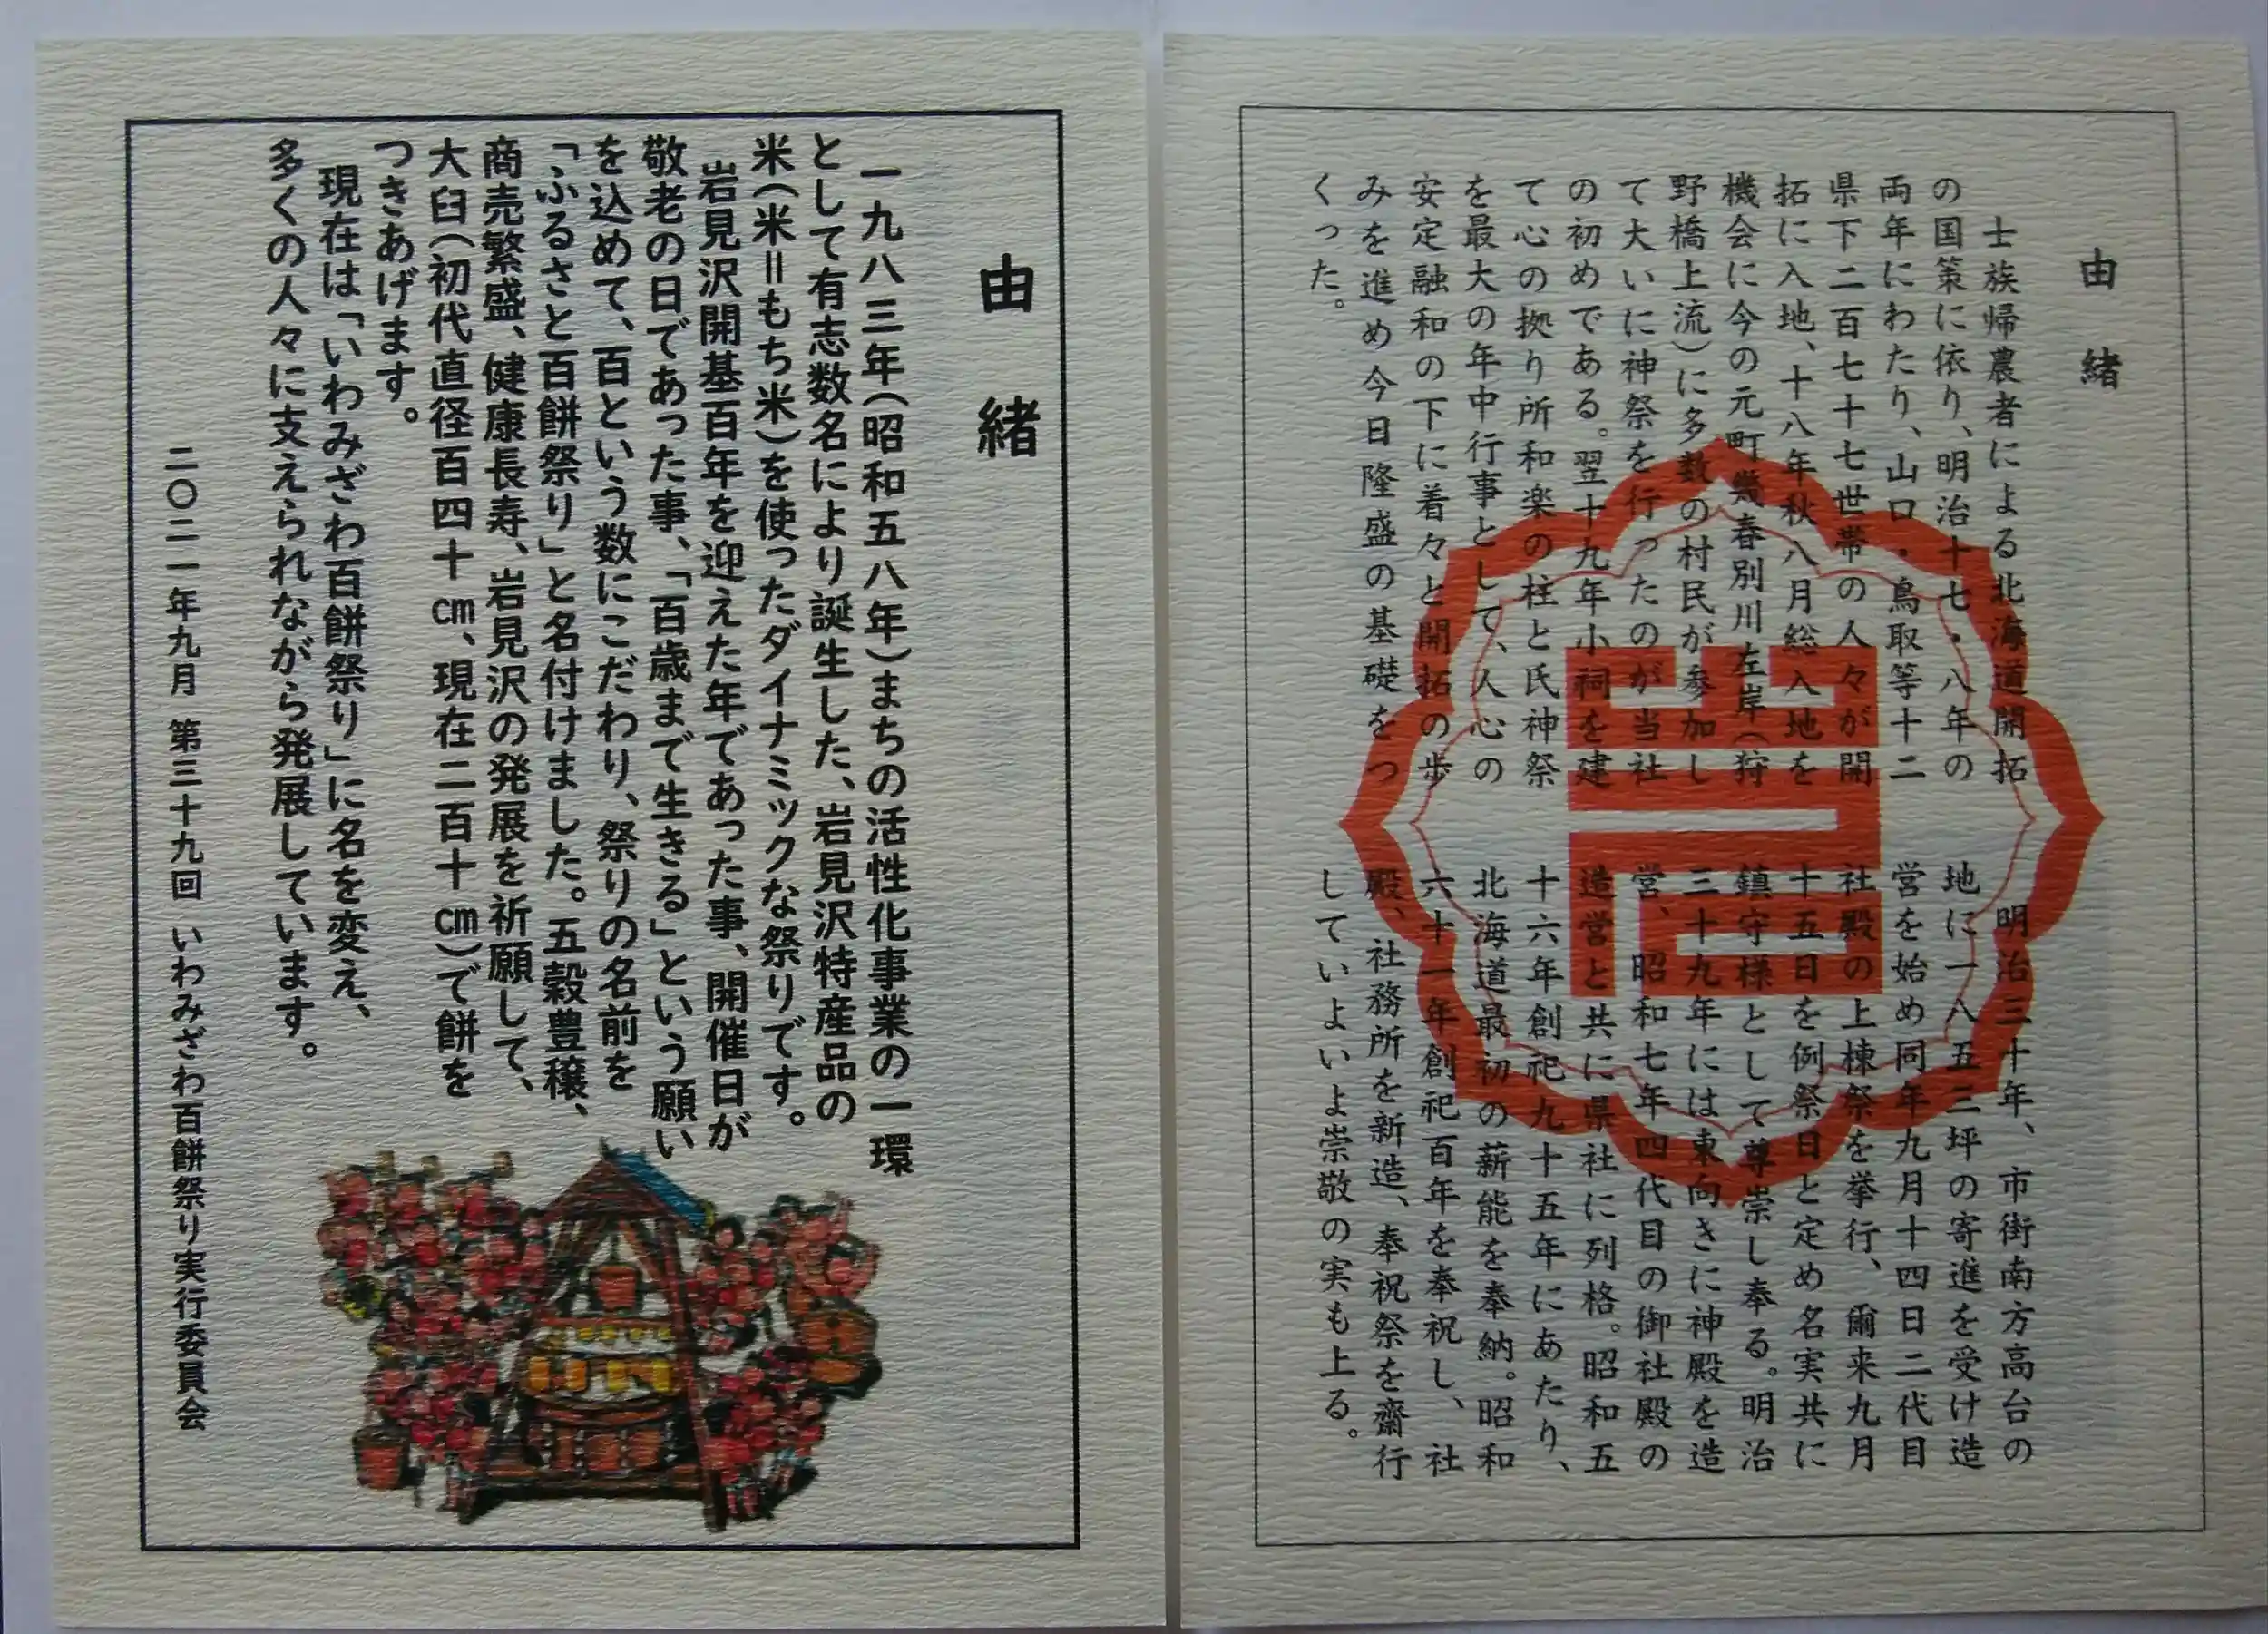 由緒
士族帰農者による北海道開拓
の国策に依り、明治十七・八年の
両年にわたり、山口・鳥取等十二
県下二百七十七世帯の人々が開
拓に入地、十八年秋八月総入地を
機会に今の元町幾春別川左岸(狩
野橋上流)に多数の村民が参加し
て大いに神祭を行ったのが当社
の初めである。翌十九年小祠を建
て心の拠り所和楽の柱と氏神祭
を最大の年中行事として、人心の
安定融和の下に着々と開拓の歩
みを進め今日隆盛の基礎をつ
くった。
明治三十年、市街南方高台の
地に一八五二坪の寄進を受け造
営を始め同年九月十四日二代目
社殿の上棟祭を挙行、爾来九月
十五日を例祭日と定め名実共に
鎮守様として尊崇し奉る。明治
三十九年には東向きに神殿を造
営、昭和七年四代目の御社殿の
造営と共に県社に列格。昭和五
十六年創祀九十五年にあたり、
北海道最初の薪能を奉納。昭和
六十一年創祀百年を奉祝し、社
殿、社務所を新造、奉祝祭を齋行
していよいよ崇敬の実も上る。
由緒
一九八三年(昭和五八年)まちの活性化事業の一環
として有志数名により誕生した、岩見沢特産品の
米(米=もち米)を使ったダイナミックな祭りです。
岩見沢開基百年を迎えた年であった事、開催日が
敬老の日であった事、「百歳まで生きる」という願い
を込めて、百という数にこだわり、祭りの名前を
「ふるさと百餅祭り」と名付けました。五穀豊穣、
商売繁盛、健康長寿、岩見沢の発展を祈願して、
大臼(初代直径百四十cm、現在二百十cm)で餅を
つきあげます。
現在は「いわみざわ百餅祭り」に名を変え、
多くの人々に支えられながら発展しています。
二〇二一年九月 第三十九回 いわみざわ百餅祭り実行委員会